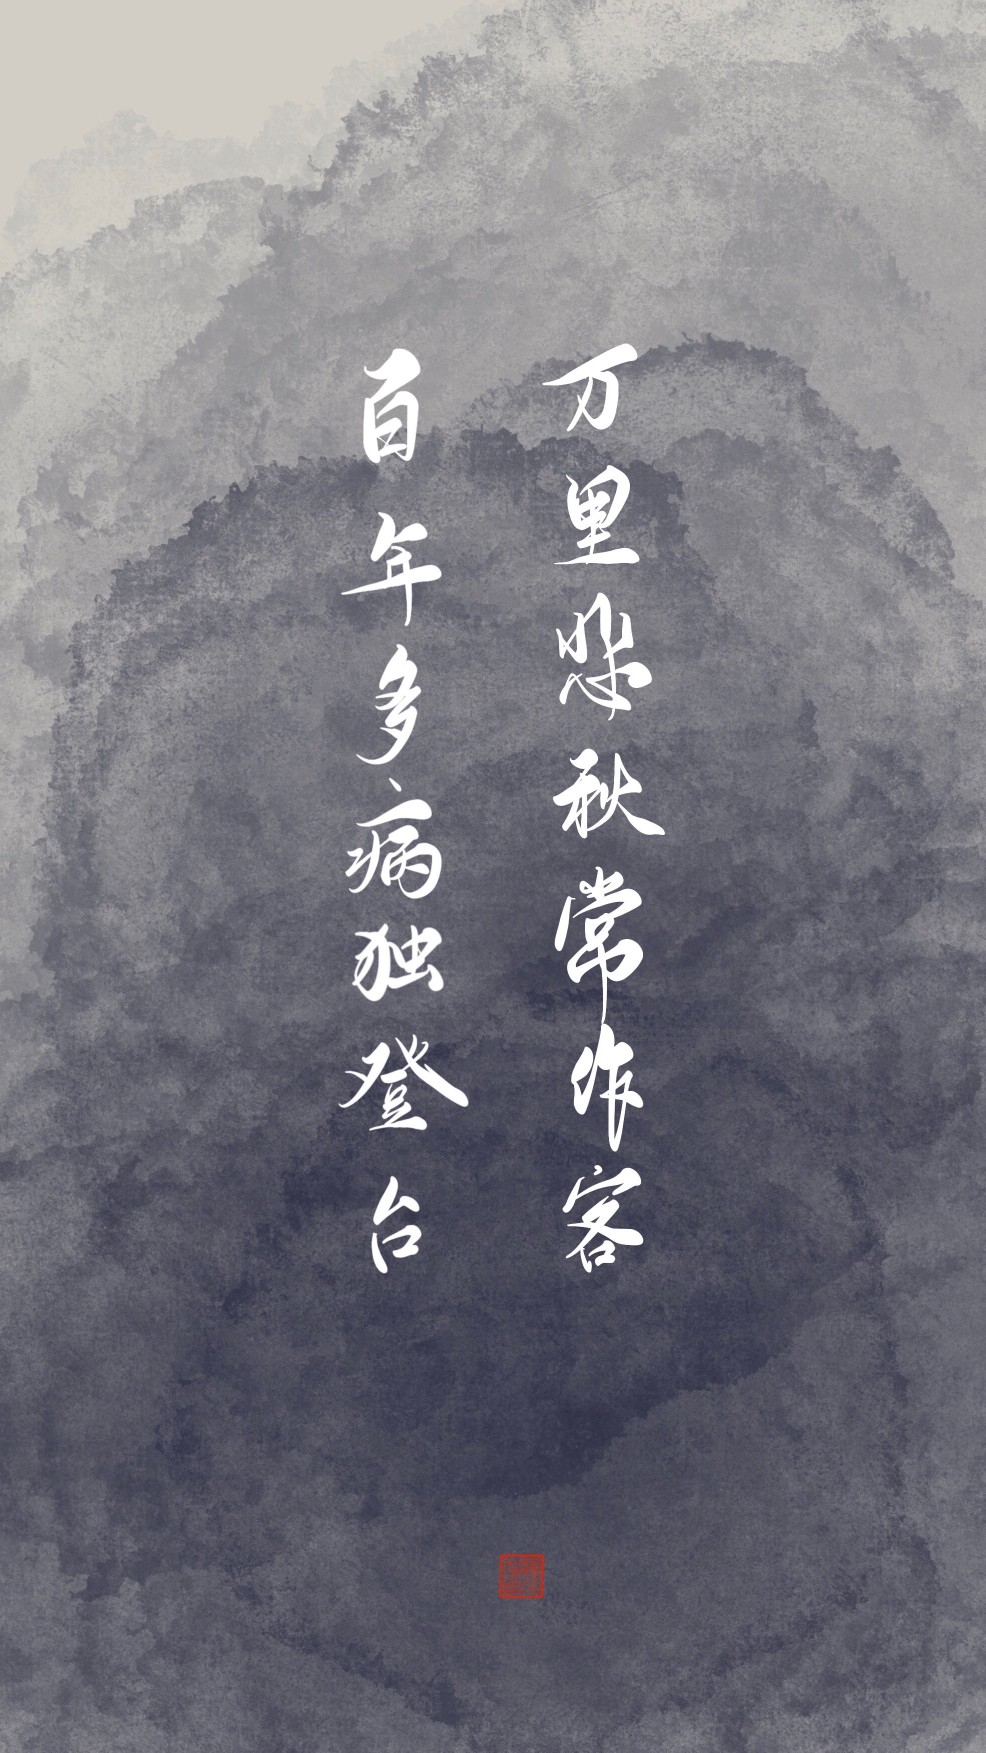 万里悲秋常作客
百年多病独登台